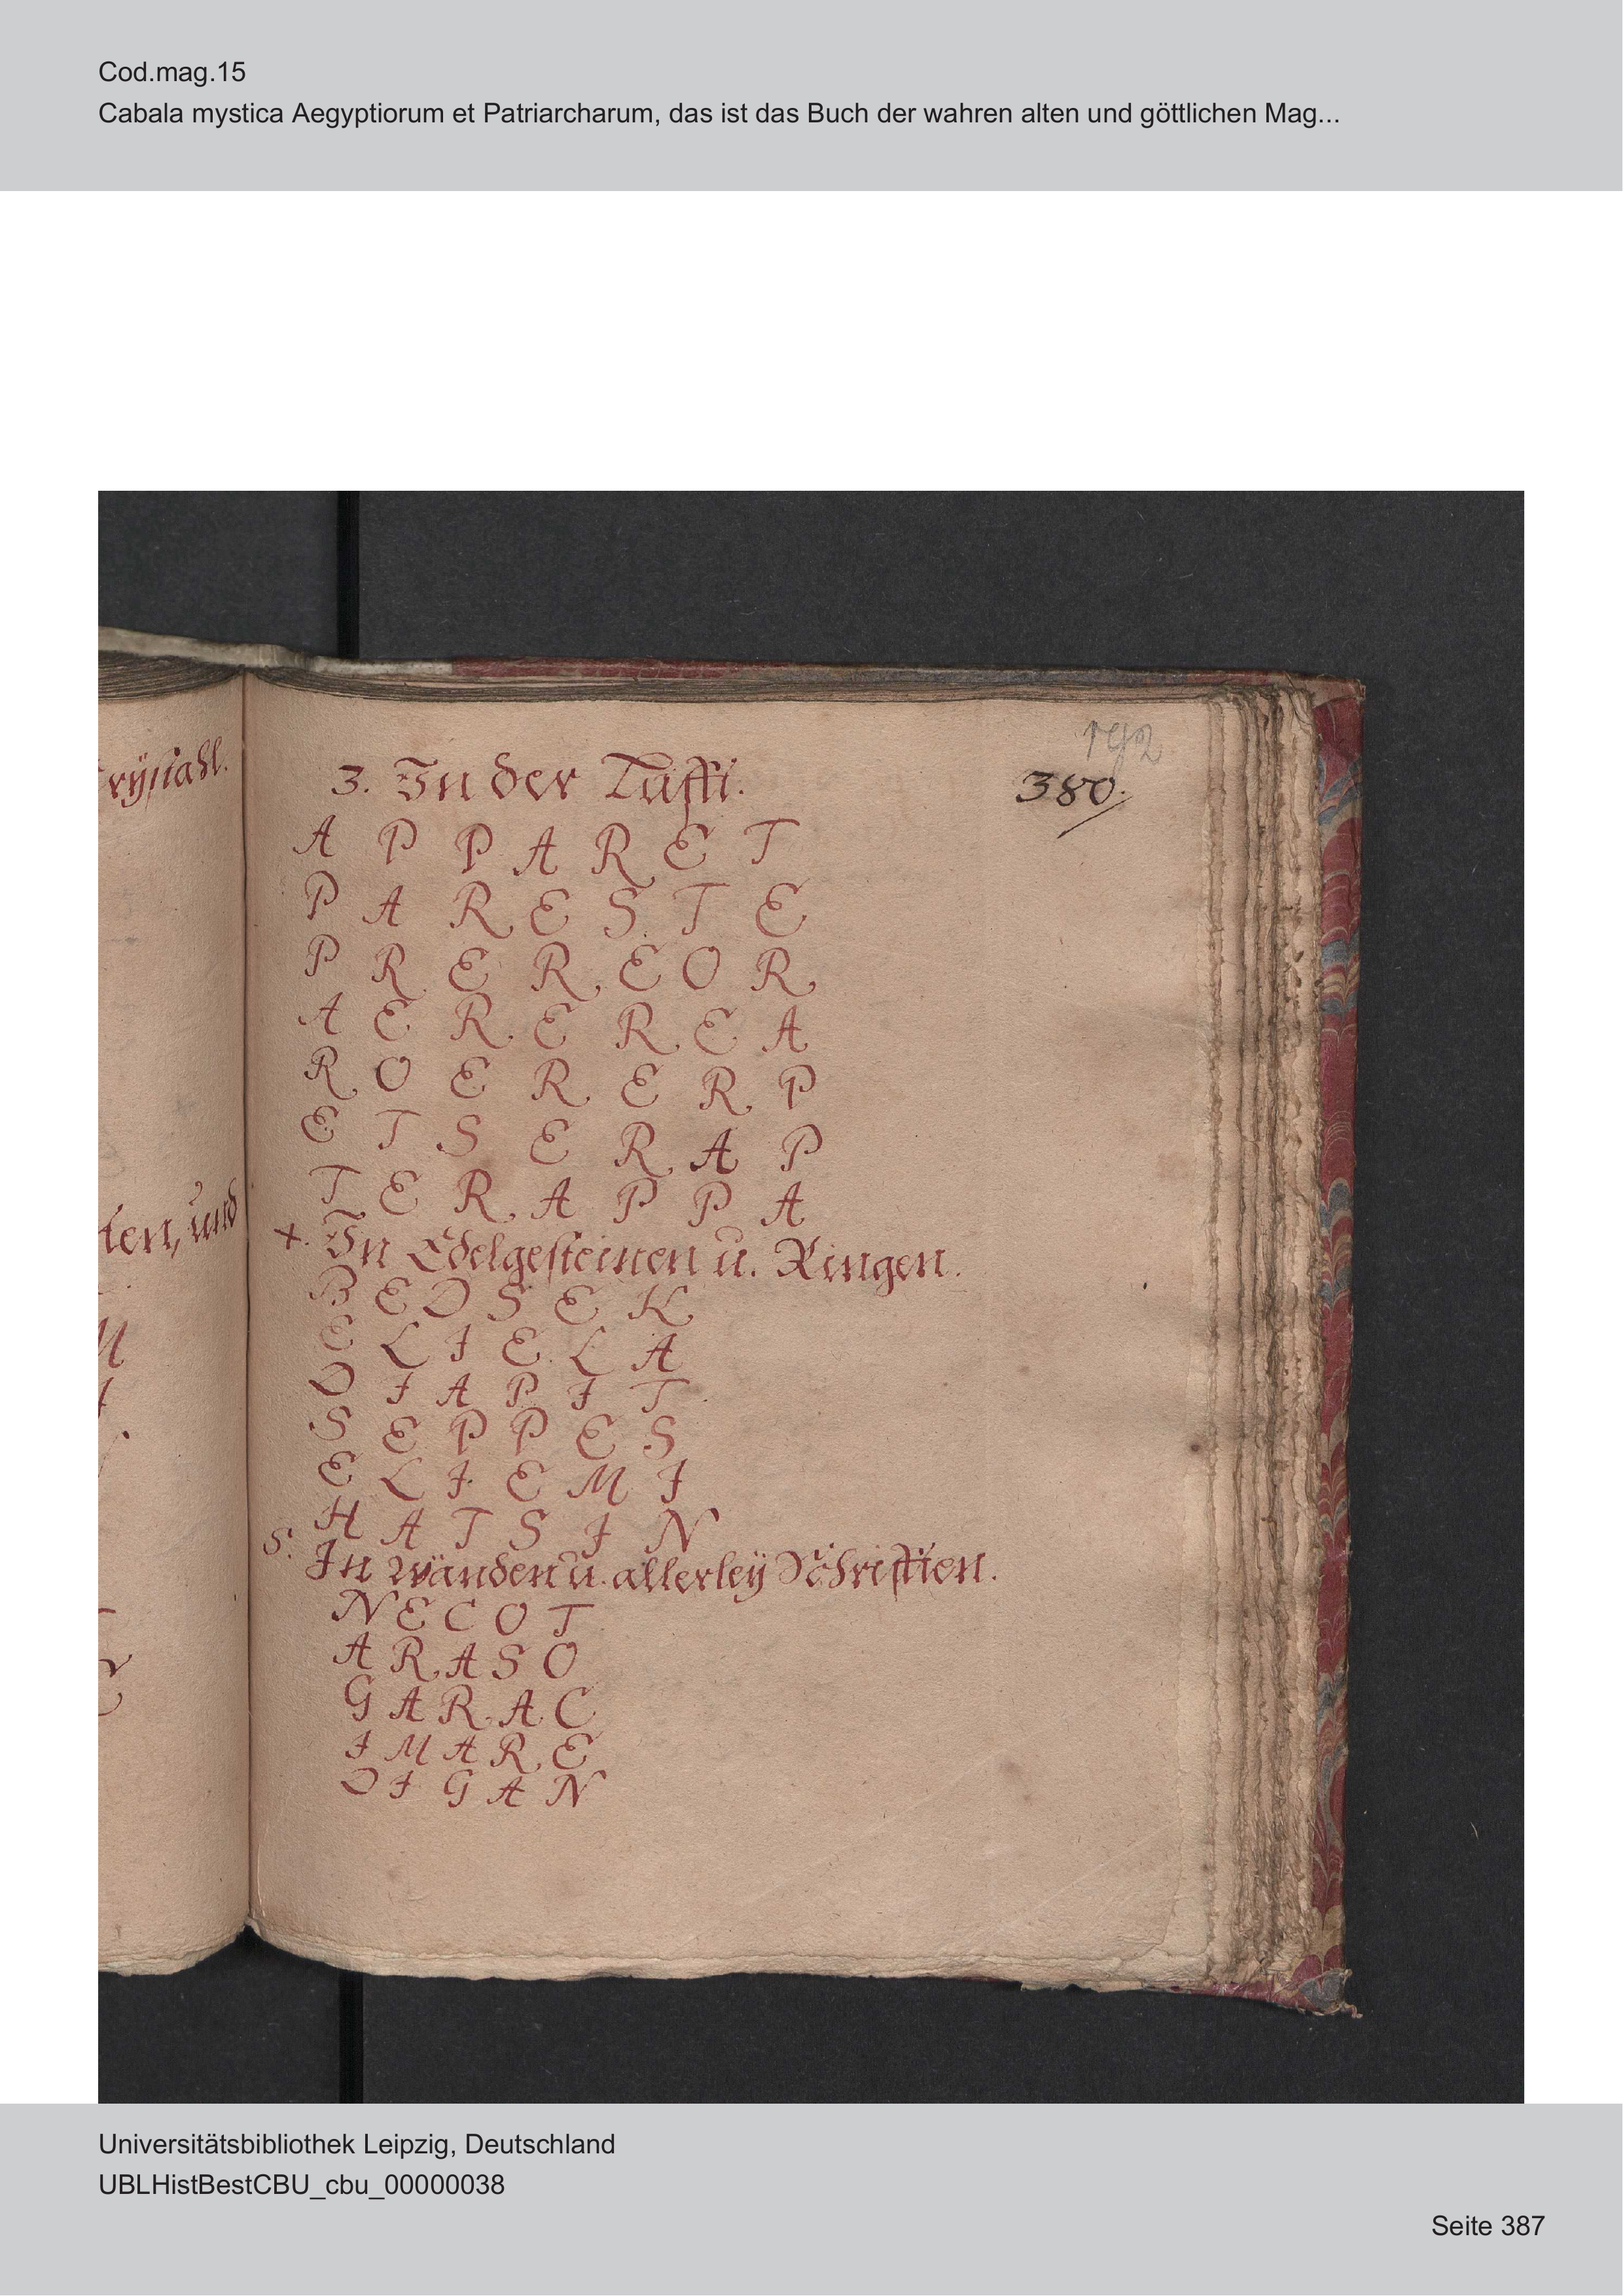 Cod.mag.15
Cabala mystica Aegyptiorum et Patriarcharum, das ist das Buch der wahren alten und göttlichen Mag...
rÿstahl.
ten, und
M
380.
3. In der Lufft.
A P P A R E T
P A R E S T E
P R E R E O R
A E R E R E A
R O E R E R P
E T S E R A P
T E R A P P A
4. In Edelgesteinen u. Ringen.
B E D S E K
E L I E L A
D I A P I T
S E P P E S
E L I E M I
H A T S I N
5. In wänden u. allerleÿ Schrifften.
N E C O T
A R A S O
G A R A C
I M A R E
D I G A N
Universitätsbibliothek Leipzig, Deutschland
UBLHistBestCBU_cbu_00000038
Seite 387